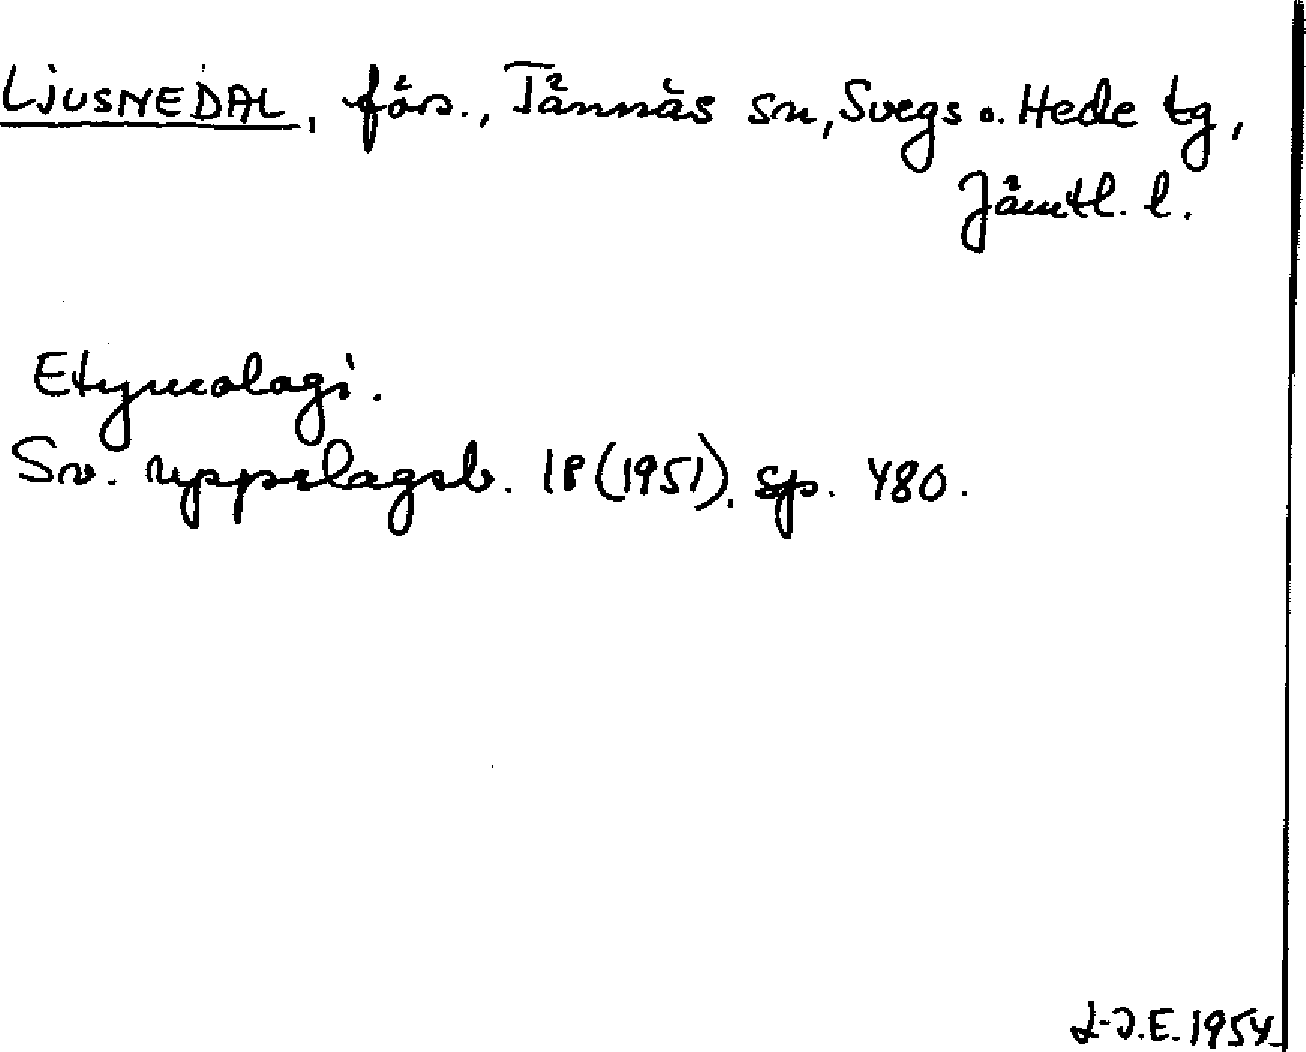 LJUSNEDAL, förs., Tännäs sn, Svegs o. Hede tg,
Jämtl. l.
Etymologi.
Sv. uppslagsb. 18 (1951). sp. 480.
L-J.E. 1954